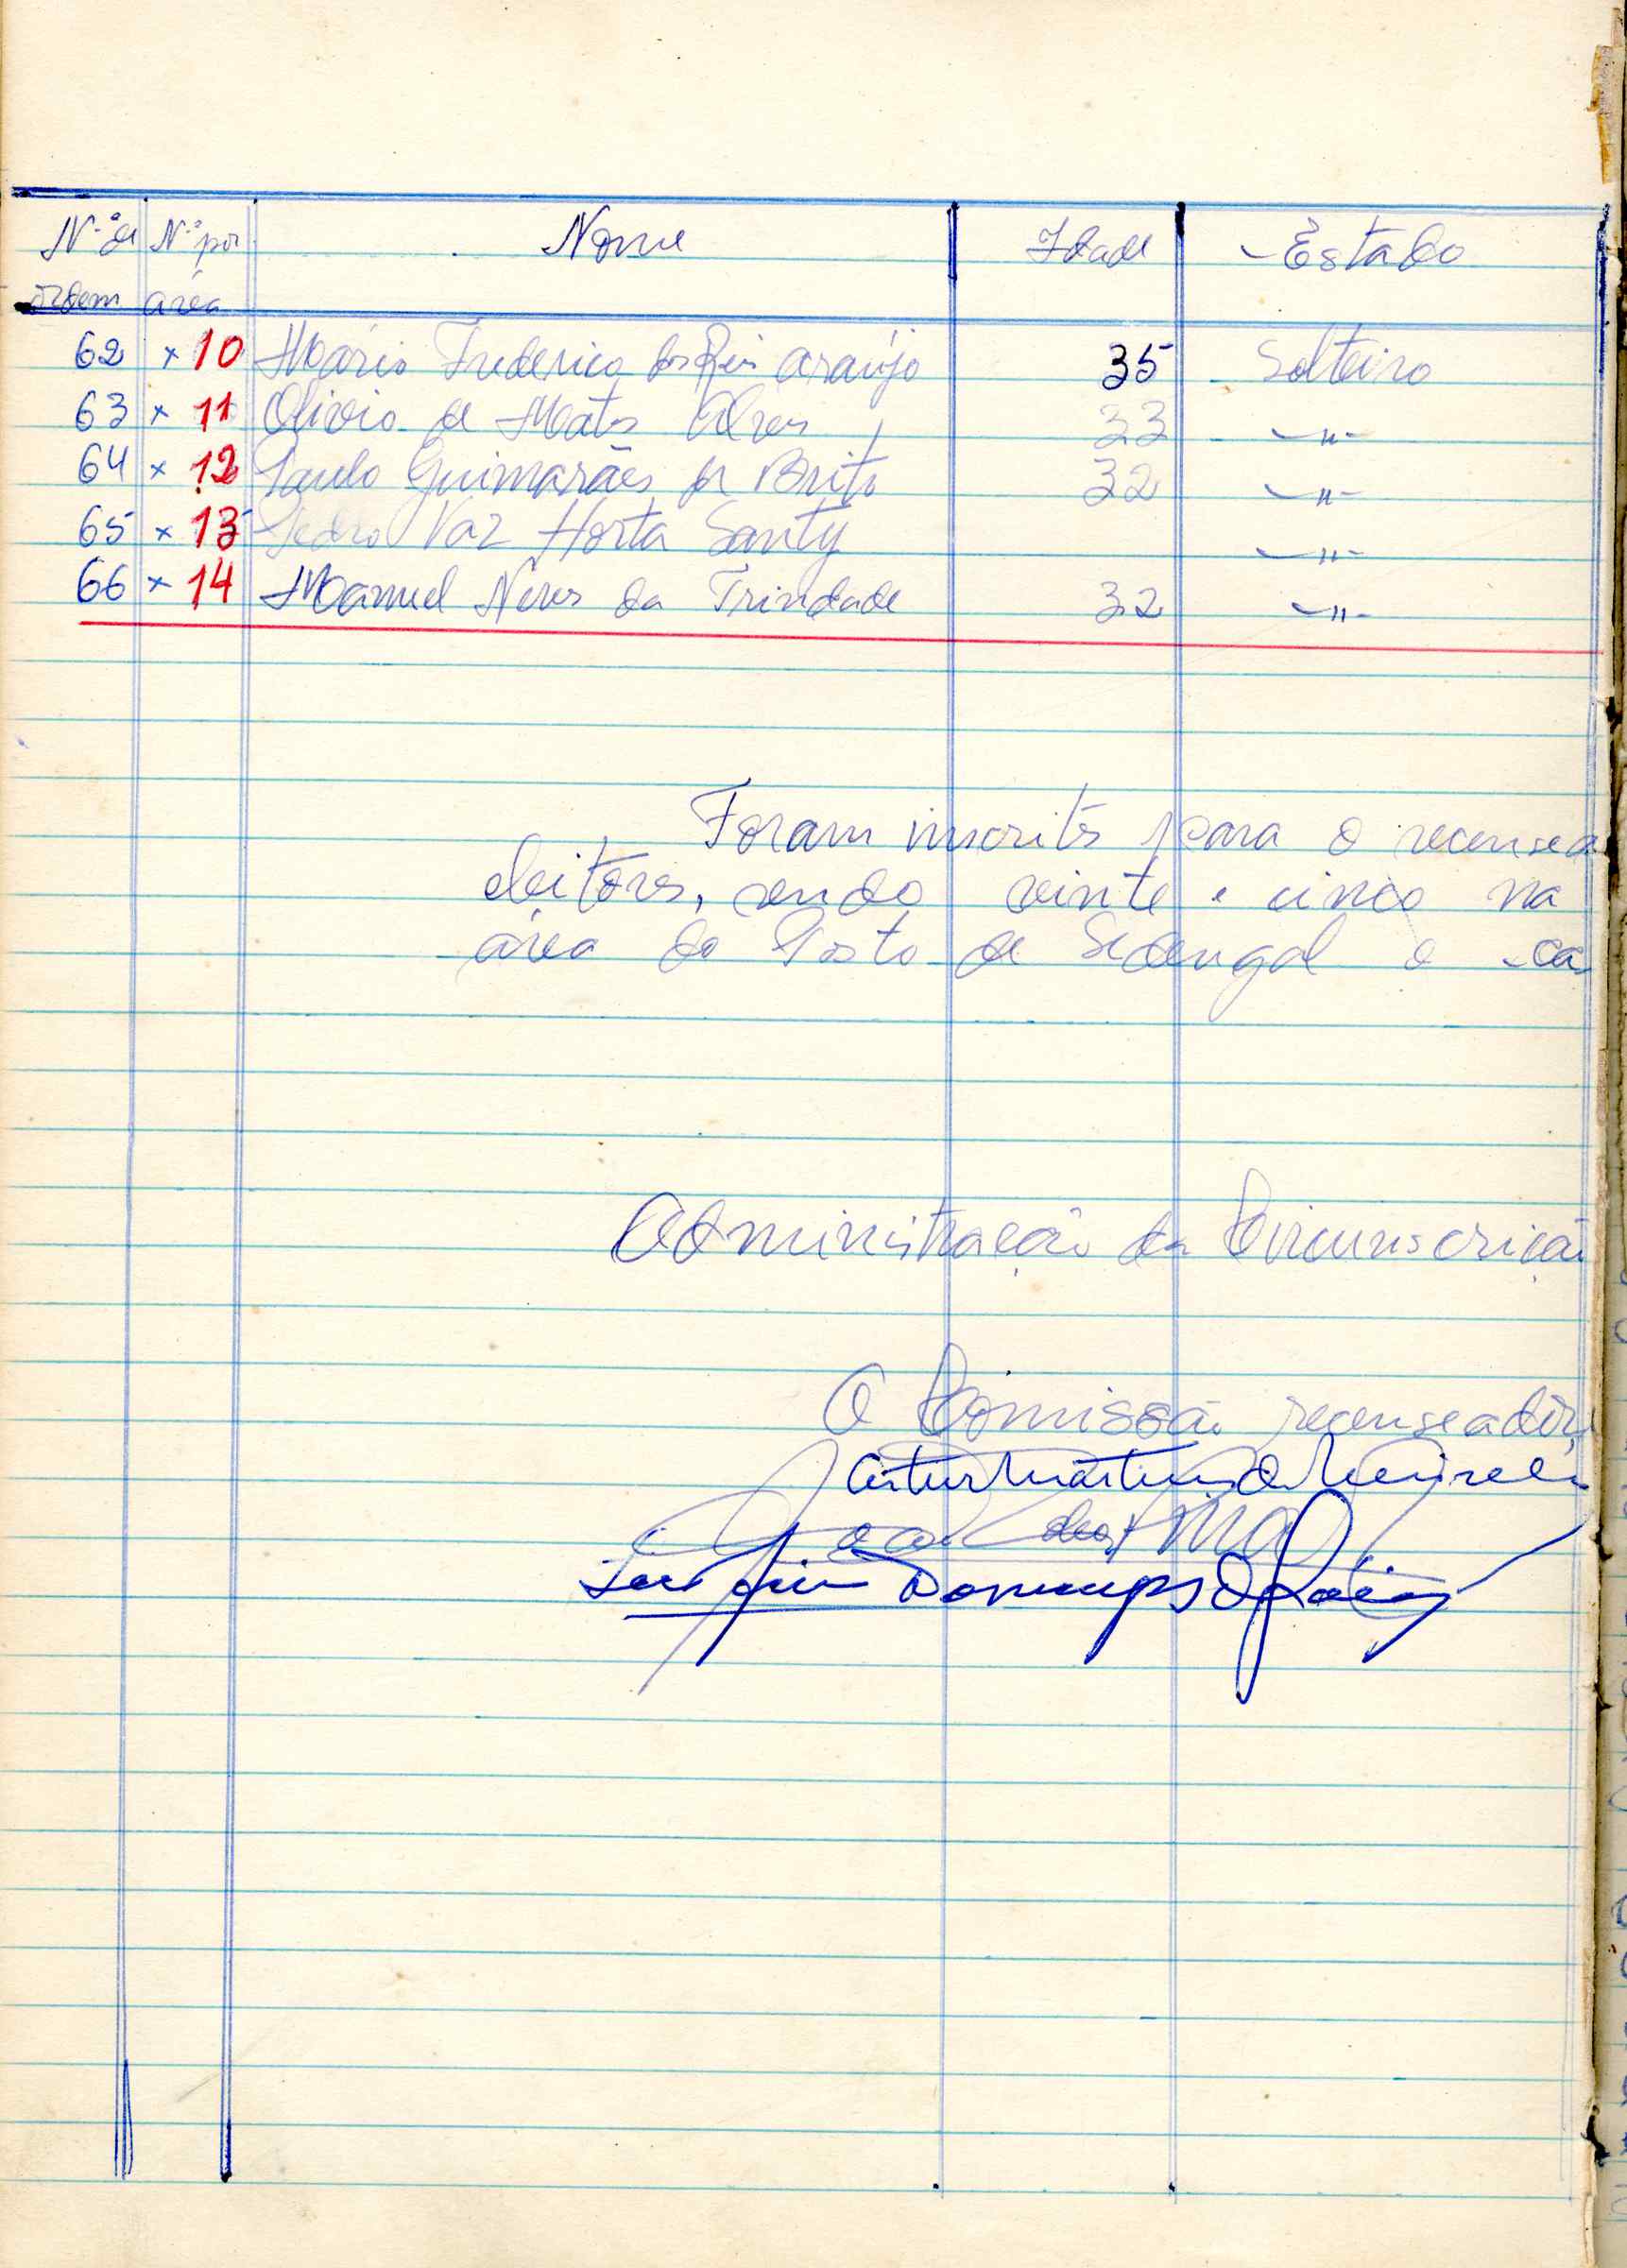 N.º de N.º por Nome Idade Estado
ordem área
62 x 10 Mário Frederico dos Reis Araújo 35 Solteiro
63 x 11 Olivio de Matos Alves 33 -"-
64 x 12 Paulo Guimarães de Brito 32 -"-
65 x 13 Pedro Vaz Horta Santy -"-
66 x 14 Manuel Neves da Trindade 32 -"-
Foram inscritos para o recensea
eleitores, sendo vinte e cinco na
área do Posto de Sedengal e ca
Administração da Circunscriçã
A Comissão recenseadora
Artur Martins de Meireles